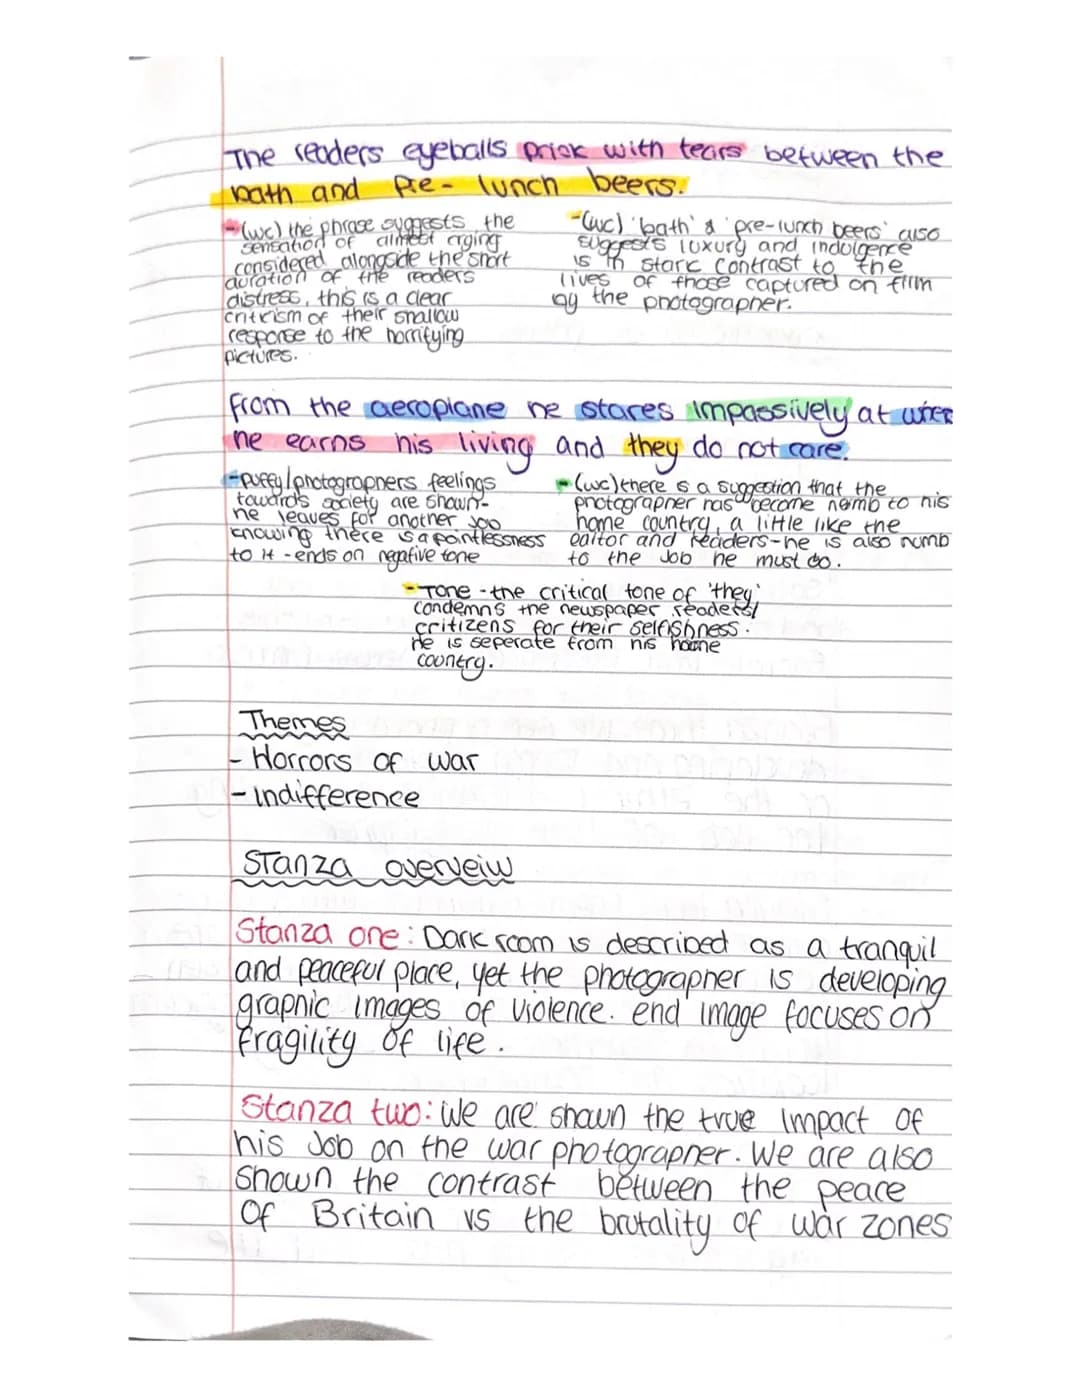 The readers eyeballs prick with tears between the
bath and pre-lunch beers.
-(wc) the phrase suggests the
sensation of almost crying
considered alongside the short
duration of the readers
distress, this is a clear
critrism of their shallow
response to the horrifying
pictures.
-(wc) 'bath' & 'pre-lunch beers' also
suggests luxury and indulgence
is in stark contrast to the
lives of those captured on film
by the photographer.
from the aeroplane he stares impassively at where
he earns his living and they do not care.
-puffy/photograpners feelings
towards society are shown-
he leaves for another job
knowing there is a pointlessness
to it - ends on negative tone
-(wc) there is a suggestion that the
photograpner has become nomb to his
home country, a little like the
editor and readers-he is also numb
to the job he must do.
-Tone - the critical tone of 'they'
condemns the newspaper readers/
critizens for their selfishness.
He is seperate from his home
country.
Themes
- Horrors of war
- indifference
Stanza overveiw
Stanza one: Dark room is described as a tranquil
and peaceful place, yet the photographer is developing
graphic images of violence. end image focuses on
fragility of life.
Stanza two: We are shown the true impact of
his Job on the war photographer. We are also
shown the contrast between the peace
Of Britain vs the brutality of war zones